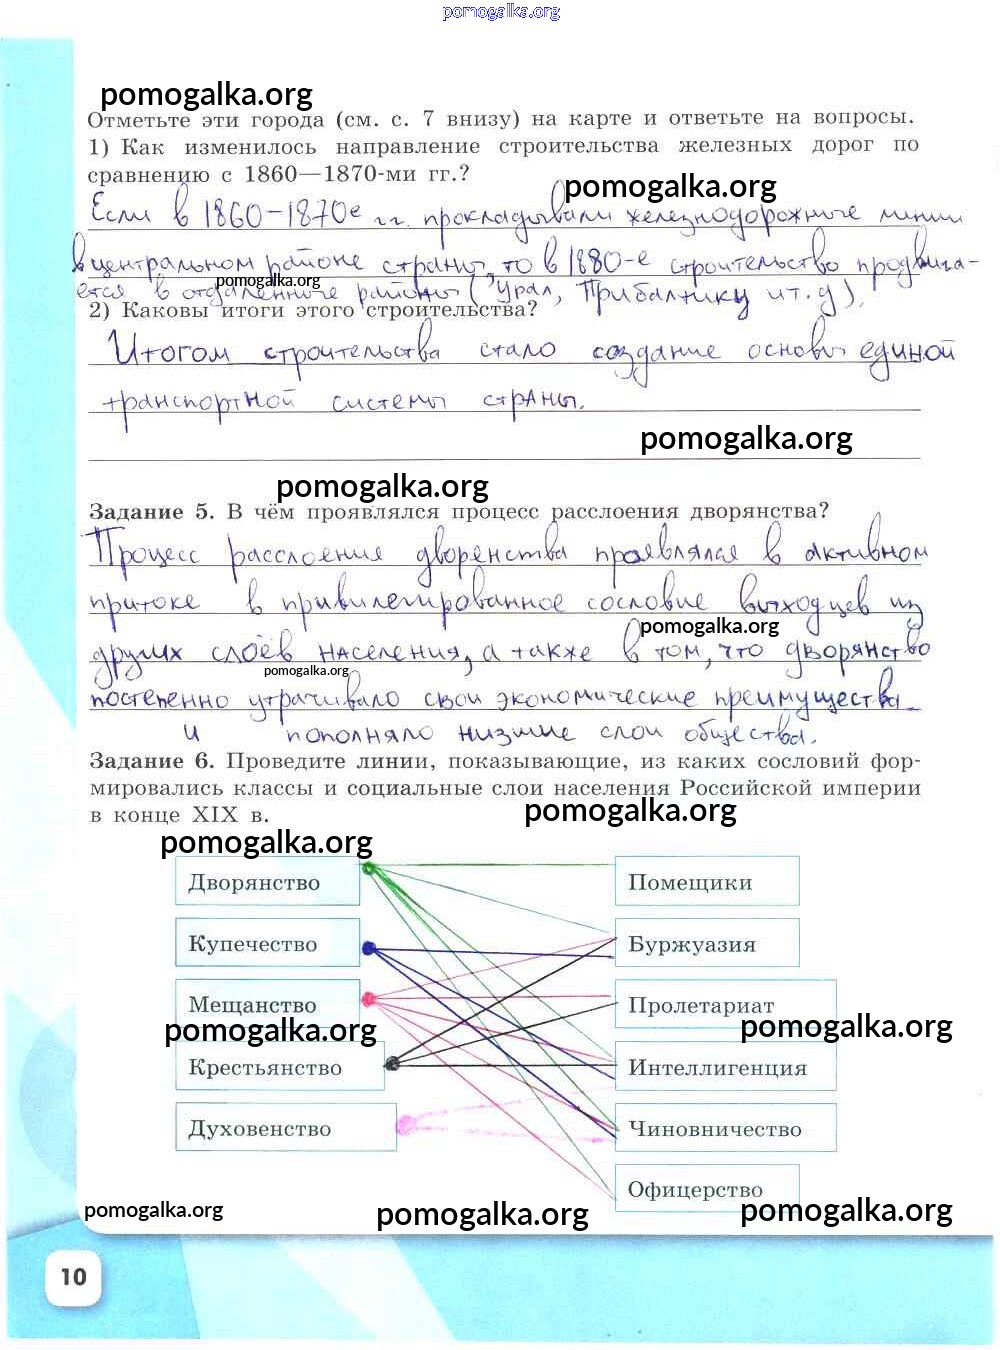 pomogalka.org
pomogalka.org
Отметьте эти города (см. с. 7 внизу) на карте и ответьте на вопросы.
1) Как изменилось направление строительства железных дорог по
сравнению с 1860—1870-ми гг.?
pomogalka.org
Если в 1860-1870е гг. прокладывали железнодорожные линии
в центральном районе страны, то в 1880-е строительство продвига-
pomogalka.org
ется в отдаленные районы (Урал, Прибалтику и т.д).
2) Каковы итоги этого строительства?
Итогом строительства стало создание основы единой
транспортной системы страны.
pomogalka.org
pomogalka.org
Задание 5. В чём проявлялся процесс расслоения дворянства?
Процесс расслоения дворенства проявлялся в активном
притоке в привилегированное сословие выходцев из
pomogalka.org
других слоёв населения, а также в том, что дворянство
pomogalka.org
постепенно утрачивало свои экономические преимущества
и пополняло низшие слои общества.
Задание 6. Проведите линии, показывающие, из каких сословий фор-
мировались классы и социальные слои населения Российской империи
в конце XIX в.
pomogalka.org
pomogalka.org
Дворянство Помещики
Купечество Буржуазия
Мещанство Пролетариат
pomogalka.org pomogalka.org
Крестьянство Интеллигенция
Духовенство Чиновничество
Офицерство
pomogalka.org pomogalka.org pomogalka.org
10